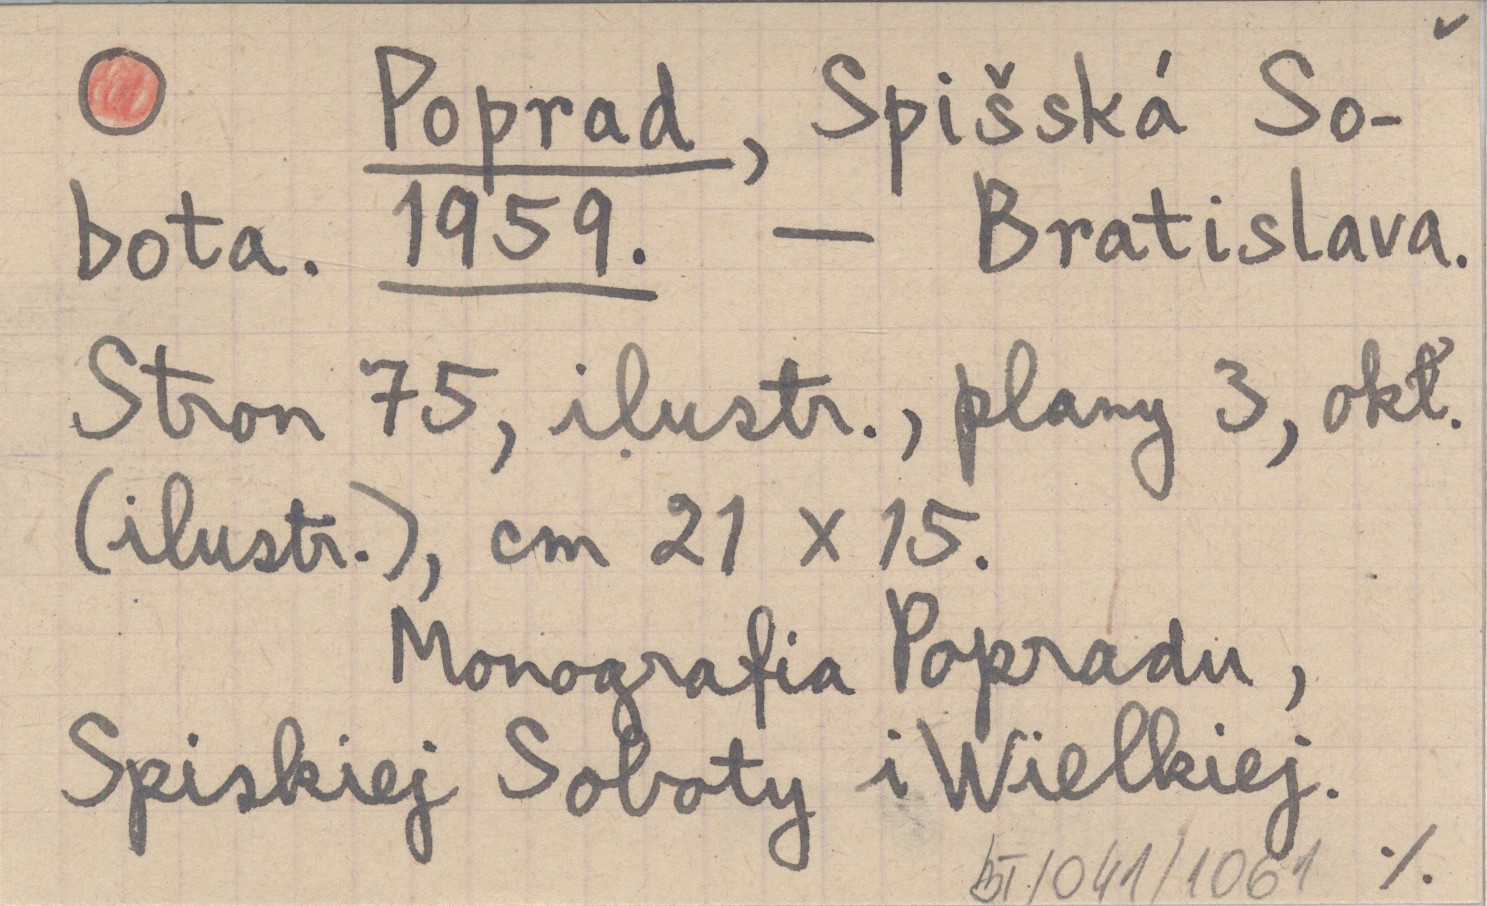 Poprad, Spišská So-
bota. 1959. — Bratislava.
Stron 75, ilustr., plany 3, okł.
(ilustr.), cm 21 x 15.
Monografia Popradu,
Spiskiej Soboty i Wielkiej.
/041/1061 ·/.